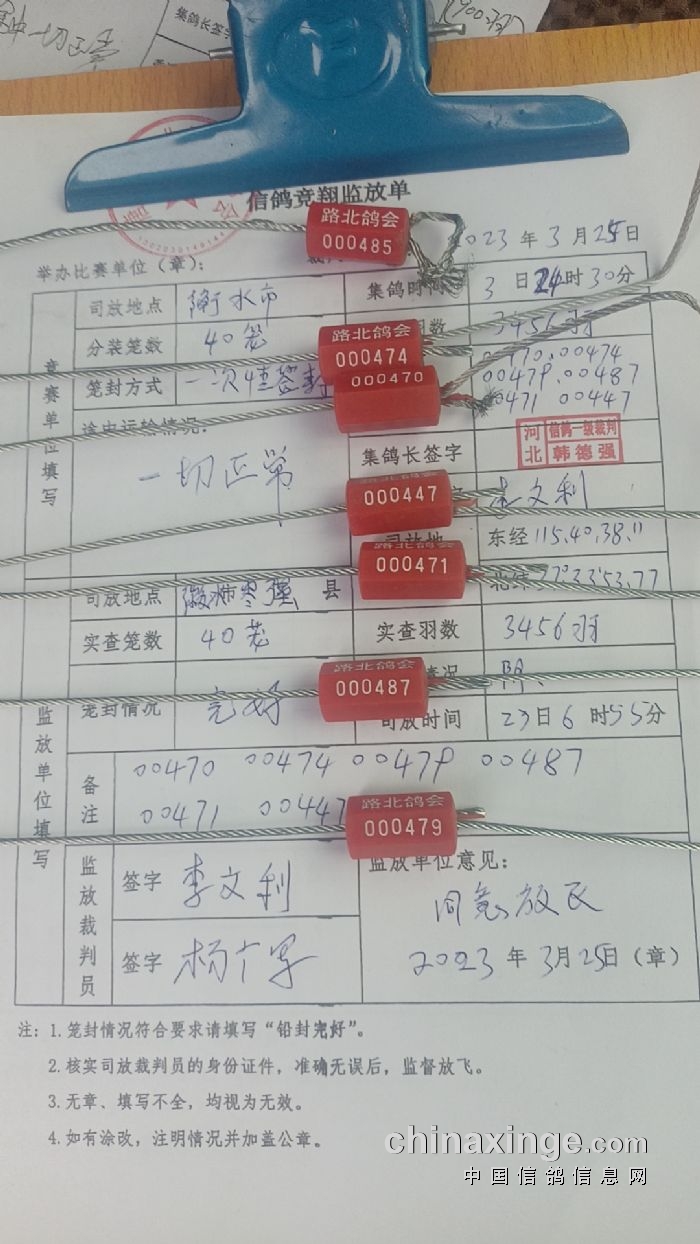 集鸽长签字
信鸽竞翔监放单
路北鸽会
000485
2023 年 3 月 25 日
举办比赛单位（章）：
司放地点 衡水市 集鸽时间 3 日 24 时 30 分
分装笼数 40笼 羽数 3456羽
路北鸽会
000474
笼封方式 一次性签封 00470.00474
000470
00479.00487
00471 00447
途中运输情况：
一切正常
集鸽长签字
河北 信鸽一级裁判 韩德强
000447
李文利
东经 115.40.38.11
路北鸽会
000471
司放地点 县
实查笼数 40笼 实查羽数 3456羽
路北鸽会
000487
笼封情况 完好 阴
司放时间 23 日 6 时 55 分
竞赛单位填写
监放单位填写
备注
00470 00474 00479 00487
00471 00447
路北鸽会
000479
监放裁判员
签字 李文利
签字
监放单位意见：
同意放飞
2023 年 3月 25日（章）
注：1.笼封情况符合要求请填写“铅封完好”。
2.核实司放裁判员的身份证件，准确无误后，监督放飞。
3.无章、填写不全，均视为无效。
4.如有涂改，注明情况并加盖公章。
chinaxinge.com
中国信鸽信息网